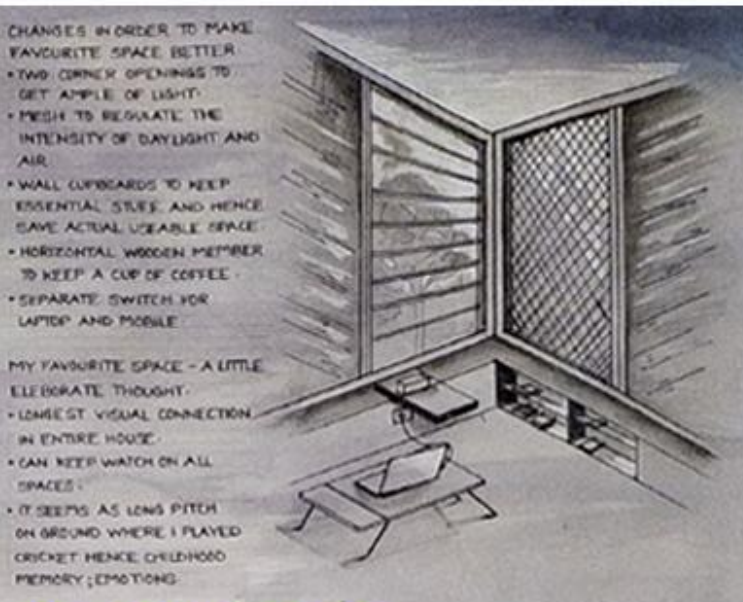 CHANGES IN ORDER TO MAKE
FAVOURITE SPACE BETTER.
• TWO CORNER OPENINGS TO
GET AMPLE OF LIGHT.
• MESH TO REGULATE THE
INTENSITY OF DAYLIGHT AND
AIR
• WALL CUPBOARDS TO KEEP
ESSENTIAL STUFF AND HENCE
SAVE ACTUAL USEABLE SPACE
• HORIZONTAL WOODEN MEMBER
TO KEEP A CUP OF COFFEE.
• SEPARATE SWITCH FOR
LAPTOP AND MOBILE
MY FAVOURITE SPACE - A LITTLE
ELEBORATE THOUGHT.
• LONGEST VISUAL CONNECTION
IN ENTIRE HOUSE.
• CAN KEEP WATCH ON ALL
SPACES.
• IT SEEMS AS LONG PITCH
ON GROUND WHERE I PLAYED
CRICKET HENCE CHILDHOOD
MEMORY; EMOTIONS